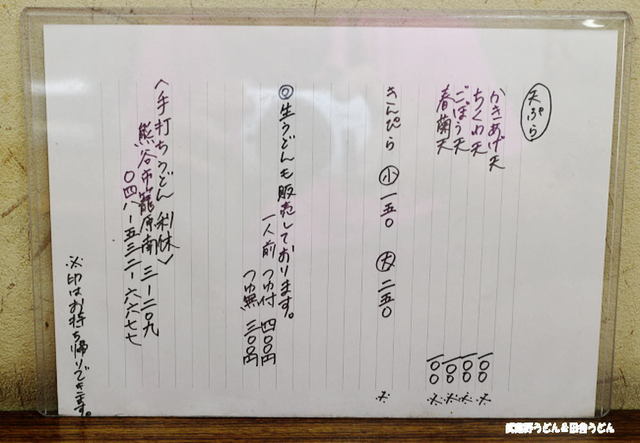 天ぷら
かきあげ天 一〇〇 ※
ちくわ天 一〇〇 ※
ごぼう天 一〇〇 ※
春菊天 一〇〇 ※
きんぴら 小 一五〇 大 二五〇 ※
◎生うどんも販売しております。
一人前 つゆ付 四〇〇円
つゆ無 三〇〇円
〈手打ちうどん 利休〉
熊谷市籠原南 三-二〇九
〇四八-五三二-六六七七
※印はお持ち帰りできます。
武蔵野うどん&田舎うどん